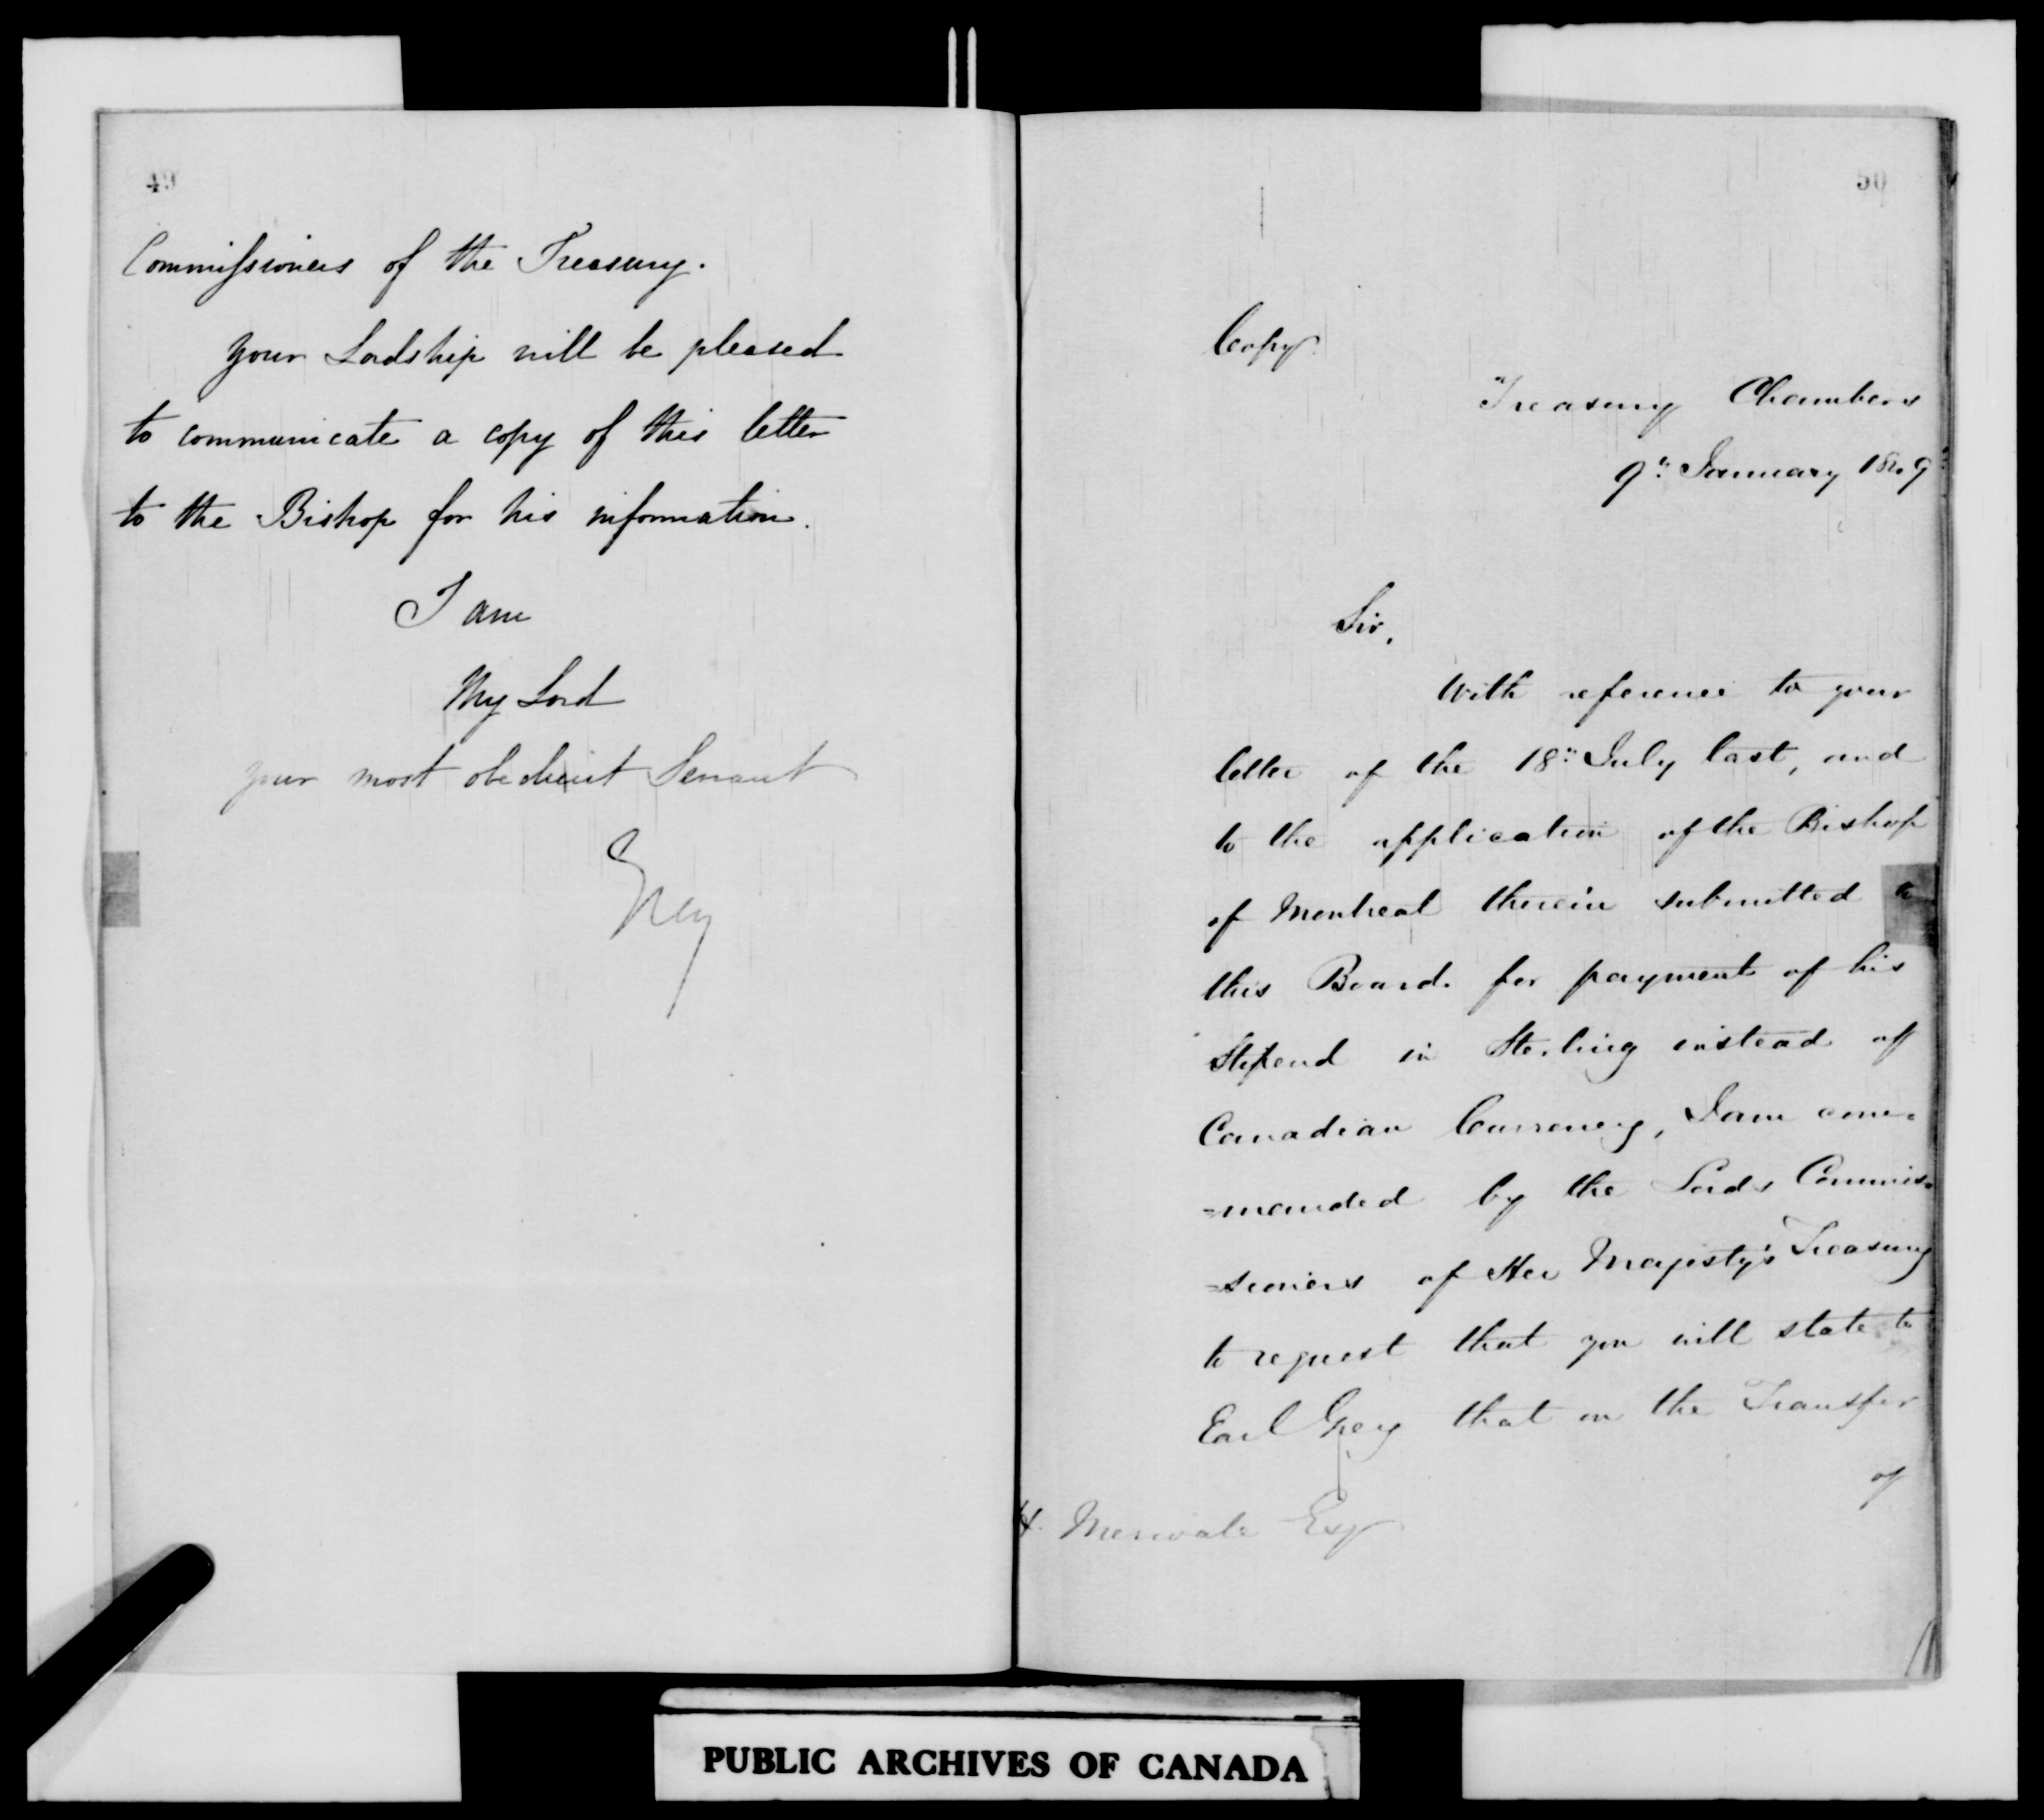 49
Commissioners of the Treasury.
Your Lordship will be pleased
to communicate a copy of this letter
to the Bishop for his information.
I am
My Lord
Your most obedient Servant
Grey
50
Copy.
Treasury Chambers
9th January 1849
Sir,
With reference to your
letter of the 18th July last, and
to the application of the Bishop
of Montreal therein submitted to
this Board for payment of his
Stipend in Sterling instead of
Canadian Currency, I am com=
=manded by the Lords Commis=
=sioners of Her Majesty's Treasury
to request that you will state to
Earl Grey that on the Transfer
of
H. Merivale Esq
PUBLIC ARCHIVES OF CANADA